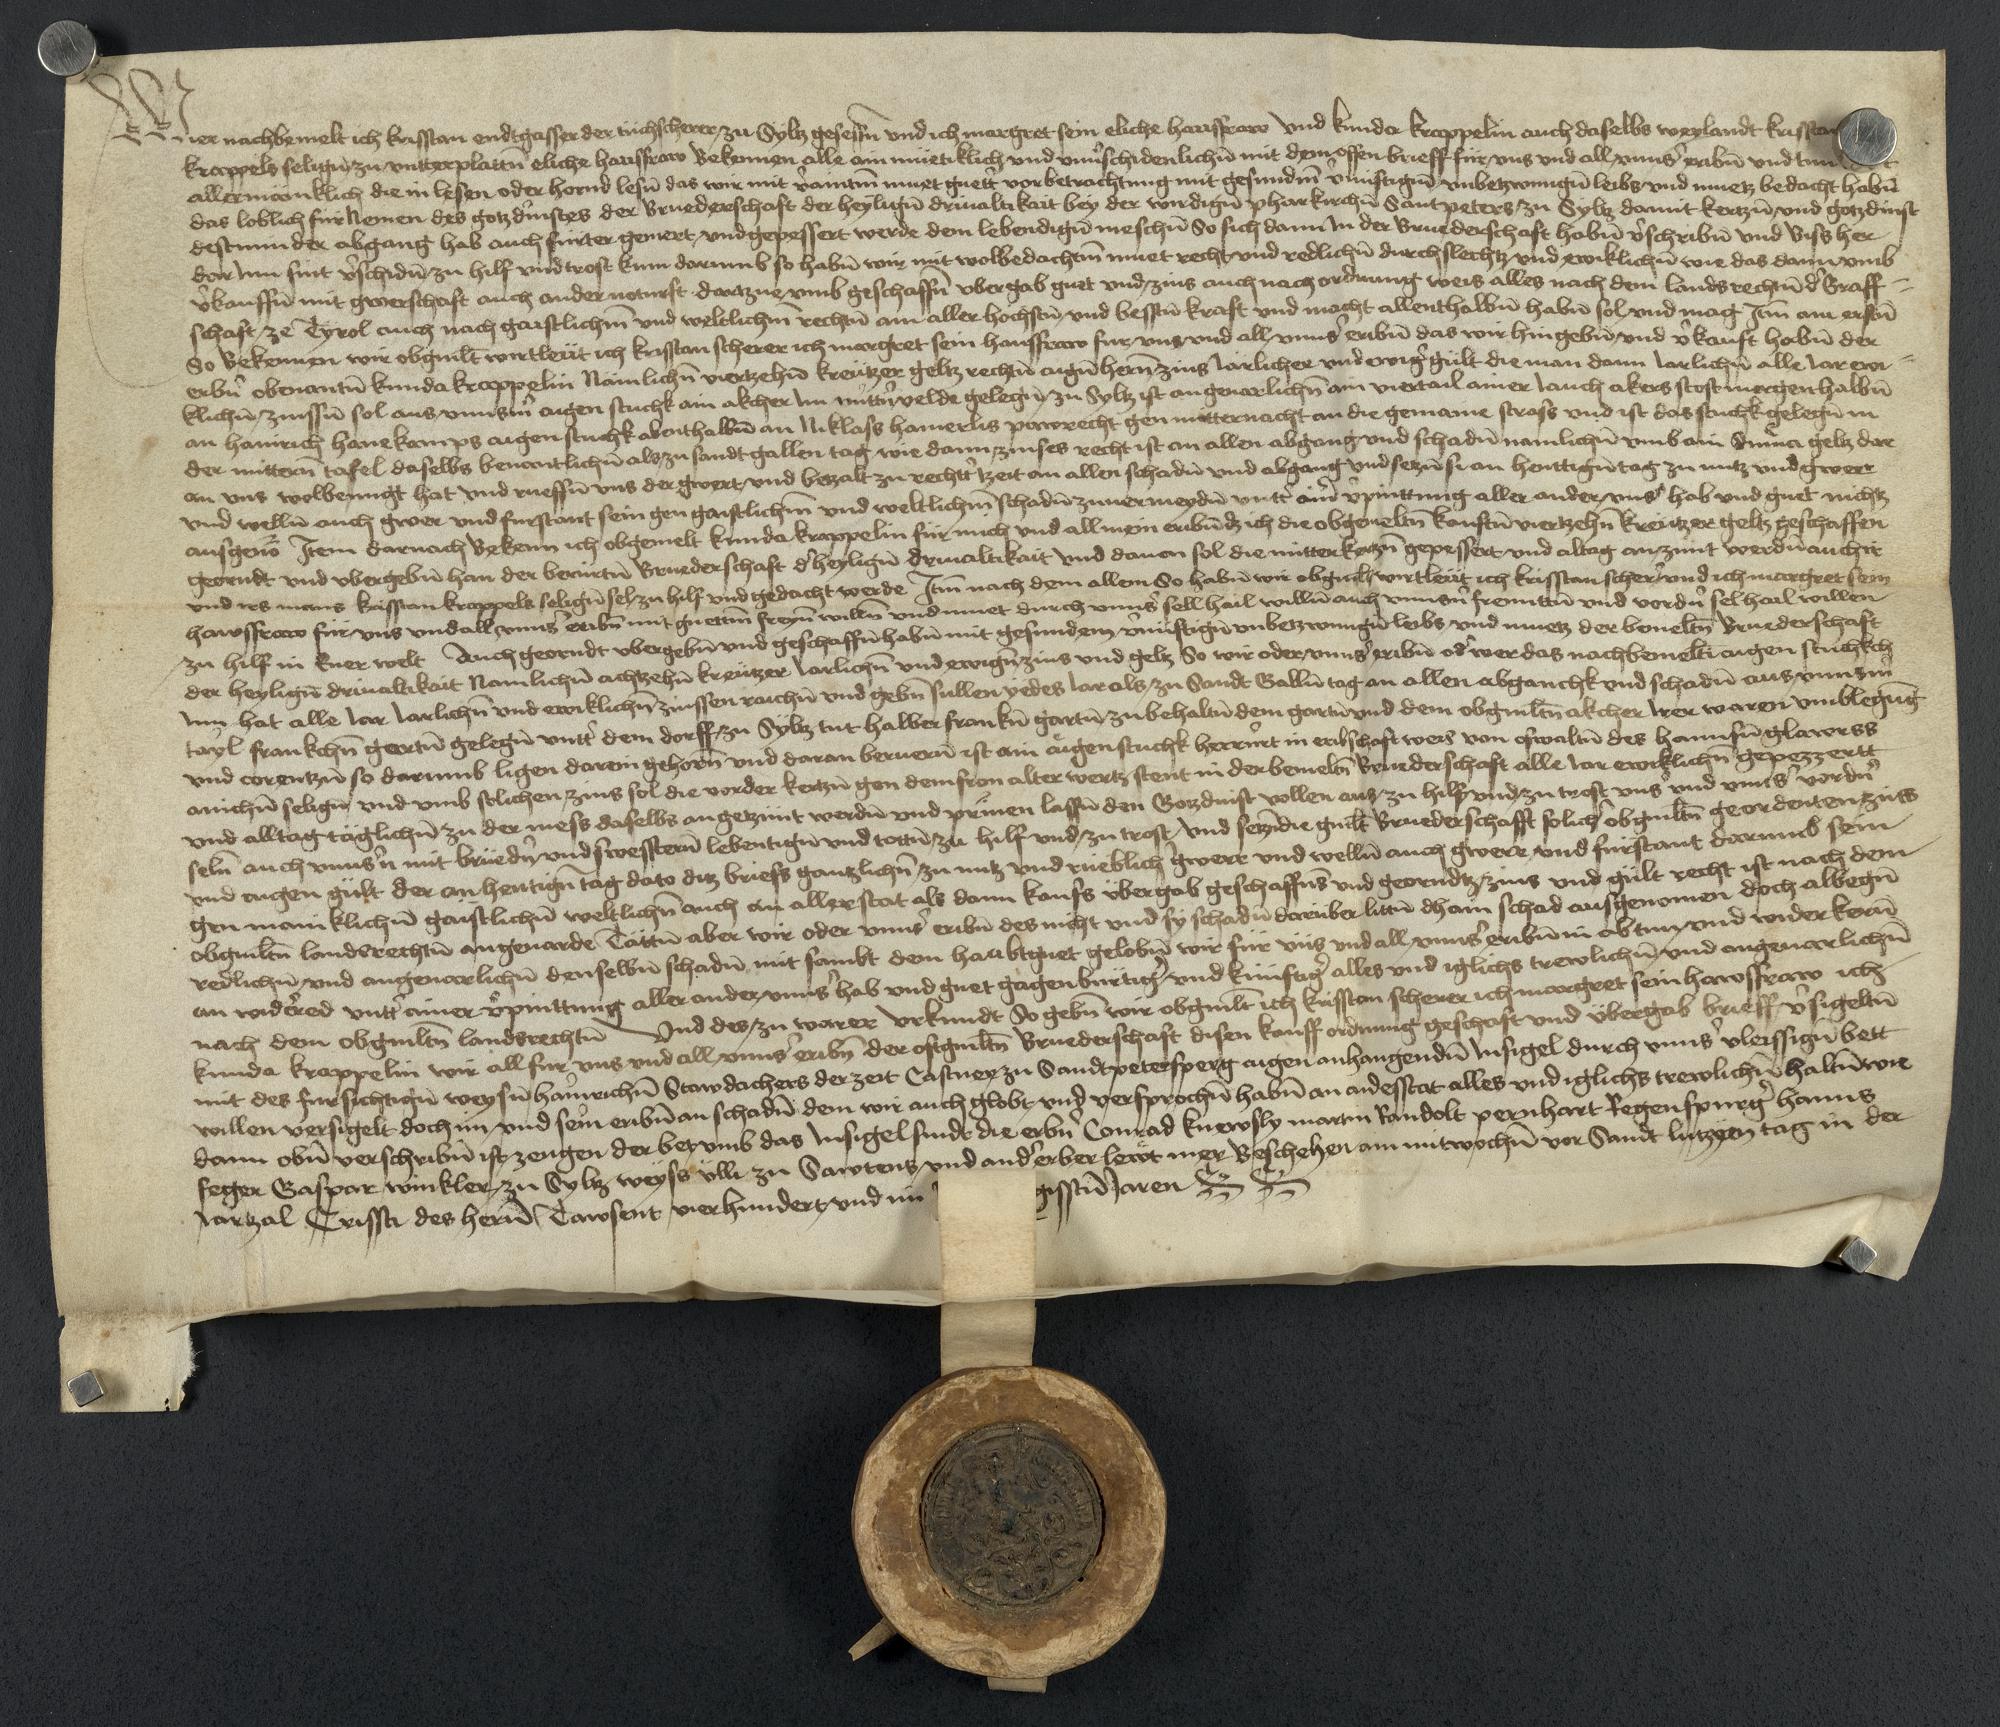 Wier nachbemelt ich krisstan endtgasser der tüchscherer zu Syltz gesessn̄ und ich margret sein eliche hawsfraw Und kunda krappelin auch daselbs weylandt krisstan
krappels selign̄ zu untterplattn̄ eliche hausfraw Bekennen alle ainmüetiklich und unūschidenlichn̄ mit dem offen brieff für uns und all unns' eribn̄ und tun
allermäniklich die in lesen oder hornd lesn̄ das wir mit v'aintm̄ muet guett' vorbetrachtung mit gesundm̄ v'nüftign̄ unbetzwungn̄ leibs und muetz bedacht habn̄
das loblich für Nemen des gotzdinstes der Bruederschaft der heylign̄ drivaltikait bey der wirdign̄ pharkirchn̄ Sant peters zu Syltz damit kertzn̄ und gotzdinst
destminder abgang hab auch fürter gemert und gepessert werde den lebendign̄ menschn̄ So sich dann in der Bruederschaft habn̄ v'schribn̄ und Biss her
dar Inn sint v'schidn̄ zu hilf und trost kum darumb so habn̄ wir mit wolbedachtm̄ muet recht und redlichn̄ durchslechtz und ewiklichn̄ wie das dann umb
v'kauffn̄ mit gwerschaft auch ander noturft dartzue umb geschaffn̄ ubergab guet und zins auch nach ordnung weis alles nach dem landsrechtn̄ d' Graff=
schaft ze Tyrol auch nach gaistlichm̄ und weltlichm̄ rechtn̄ am aller höchstn̄ und besstn̄ kraft und macht allenthalbn̄ habn̄ sol und mag Itm̄ am erstn̄
So Bekennen wir obgmlt wirtlewt ich krisstan scherer ich margret sein hausfraw für uns und all unns' eribn̄ das wir hingebn̄ und v'kauft habn̄ der
erbn̄ obenantn̄ kunda krappelin Nämlichn̄ viertzehn̄ kreützer geltz rechtn̄ aign̄ hern̄ zins Järlicher und ewig' gült die man dann Jarlichn̄ alle Jar ewi=
klichn̄ zinssn̄ sol aus unnsm̄ aigen stuchk ain akcher Im mittn̄ velde gelegn̄ zu Syltz ist angevarlichn̄ ain viertail ainer Jauch akers stost morgenthalbn̄
an hainrich hanekamps aigen stuchk abenthalbn̄ an Niklass hamerlis pawrecht gen mitternacht an die gemaine strass und ist das stuchk gelegn̄ in
der mittern̄ tafel daselbs benantlichn̄ als zu sandt gallen tag wie dann zinses recht ist an allen abgang und schadn̄ namlichn̄ umb ain Summa geltz dar
an uns wolbenüegt hat und rueffn̄ uns der gwert und betzalt zu rechtr' tzeit an allen schadn̄ und abgang und setzn̄ si an heuttign̄ tag zu nutz und gwerr
und welln̄ auch gwer und fürstant sein gen gaistlichm̄ und weltlichm̄ schadn̄ zuvermeydn̄ untt' ainr' v'pinttung aller ander unns' hab und guet nichtz
ausgenō Item darnach Bekenn ich obgemelt kunda krappelin für mich und all mein eribn̄ dz ich die obgemeltn̄ kauftn̄ viertzehn̄ kreützer geltz geschaffen
geornd̄t und ubergebn̄ han der berürtn̄ Bruederschaft d' heylign̄ drivaltikait und davon sol die mitterkertzn̄ gepessert und altag anzünt werdn̄ auch ir
und irs mans krisstan krappels selign̄ sel zu hilf und gedacht werde Itm̄ nach dem allem So habn̄ wir obgmlt wirtleüt ich krisstan scherr' und ich margret sein
hawsfraw für uns und all unns' eribn̄ mit guettm̄ freyn̄ willn̄ und muet durch unns' sell hail willn̄ auch unnsn̄ freinttn̄ und vordn̄ sel hail willen
zu hilf in Ener welt Auch geornd̄t ubergebn̄ und geschaffn̄ habn̄ mit gesundem v'nüftign̄ unbetzwungn̄ leibs und muetz der bemeltn̄ Bruederschaft
der heylign̄ drivaltikait Namlichn̄ achtzehn̄ kreützer Jarlichn̄ und ewign̄ zins und geltz So wir oder unns' eribn̄ od' wer das nachbemelt aigen stuchkch
Inn hat alle Jar Jarlichn̄ und ewiklichn̄ zinssen raichn̄ und gebn̄ sullen yedes Jar als zu Sandt Galln̄ tag an allen abganchk und schadn̄ aus unnsm̄
tayl frankchn̄ geartn̄ gelegn̄ untt' dem dorff zu Syltz tut halber frankn̄ gartn̄ zubehaltn̄ dem gartn̄ und dem obgmltn̄ akcher Irer waren umblegūg
und corentzn̄ so darumb ligen darein gehorn̄ und daran berüern̄ ist ain aigen stuchk herrürt in eribschaft weis von oswaltn̄ des hannsn̄ glawrss
ainichn̄ selign̄ und umb solichen zins sol die vorder kertzn̄ gen dem fron alter wertz stent in der bemeltn̄ Bruederschaft alle Jar ewiklichn̄ gepezzertt
und alltag täglichn̄ zu der mess daselbs angetzünt werdn̄ und prinen lassn̄ den Gotzdinst vollen aus zu hilf und zu trost uns und unns' vordn̄
seln̄ auch unns'n mit brüedn̄ und swesstern̄ lebentign̄ und tottn̄ zu hilf und zu trost und setzn̄ die gmlt Bruederschafft solich' obgmltn̄ geordenten zinss
und aigen gült der an heutign̄ tag dato ditz briefs gantzlichn̄ zu nutz und rüeblich' gwere und welln̄ auch gwere und fürstant darumb sein
gen mainiklichn̄ gaistlichn̄ weltlichn̄ auch an aller stat als dann kaufs übergab geschaffns̄ und georndtz zins und gült recht ist nach dem
obgmltn̄ landsrechtn̄ angevarde Tättn̄ aber wir oder unns' eribn̄ des nicht und sy schadn̄ darüber littn̄ dhain schad ausgenomen doch albegn̄
redlichn̄ und angevarlichn̄ denselbn̄ schadn̄ mit sambt dem haubtguet gelobn̄ wir für uns und all unns' eribn̄ in abtun und widerkern̄
an widr'red untt' ainer v'pinttung aller ander unns' hab und guet gagenbürtig' und künftig' alles und iglichs trewlichn̄ und angevarlichn̄
nach dem obgmltn̄ landsrechtn̄ Und des zu warer urkundt So gebn̄ wir obgmlt ich krisstan scherer ich margret sein hawsfraw ich
kunda krappelin wir all für uns und all unns' eribn̄ der oftgmltn̄ Bruederschaft disen kauff ordnung geschaft und übergab brieff v'sigeltn̄
mit des fürsichtign̄ weysn̄ hainrichn̄ Stawdachers der zeit Castner zu Sandtpetersperg aigen anhangendn̄ Insigel durch unns' vleissign̄ bett
willen versigelt doch im und sein eribn̄ an schadn̄ dem wir auch globt und versprochn̄ habn̄ an aidesstat alles und iglichs trewlichn̄ haltn̄ wie
dann obn̄ verschribn̄ ist zeugen der bet umb das Insigel sindt die erbn̄ Conrad knewsly martin Randolt pernhart Regenspurg' hanns
feger Gaspar winkler zu Syltz weyss ülli zu Sawtens und and' erber lewt mer Beschehen am mitwochn̄ vor Sandt lutzyen tag in der
Jartzal Crissti des hern̄ Tawsent vierhundert und im gisstn̄ Jaren